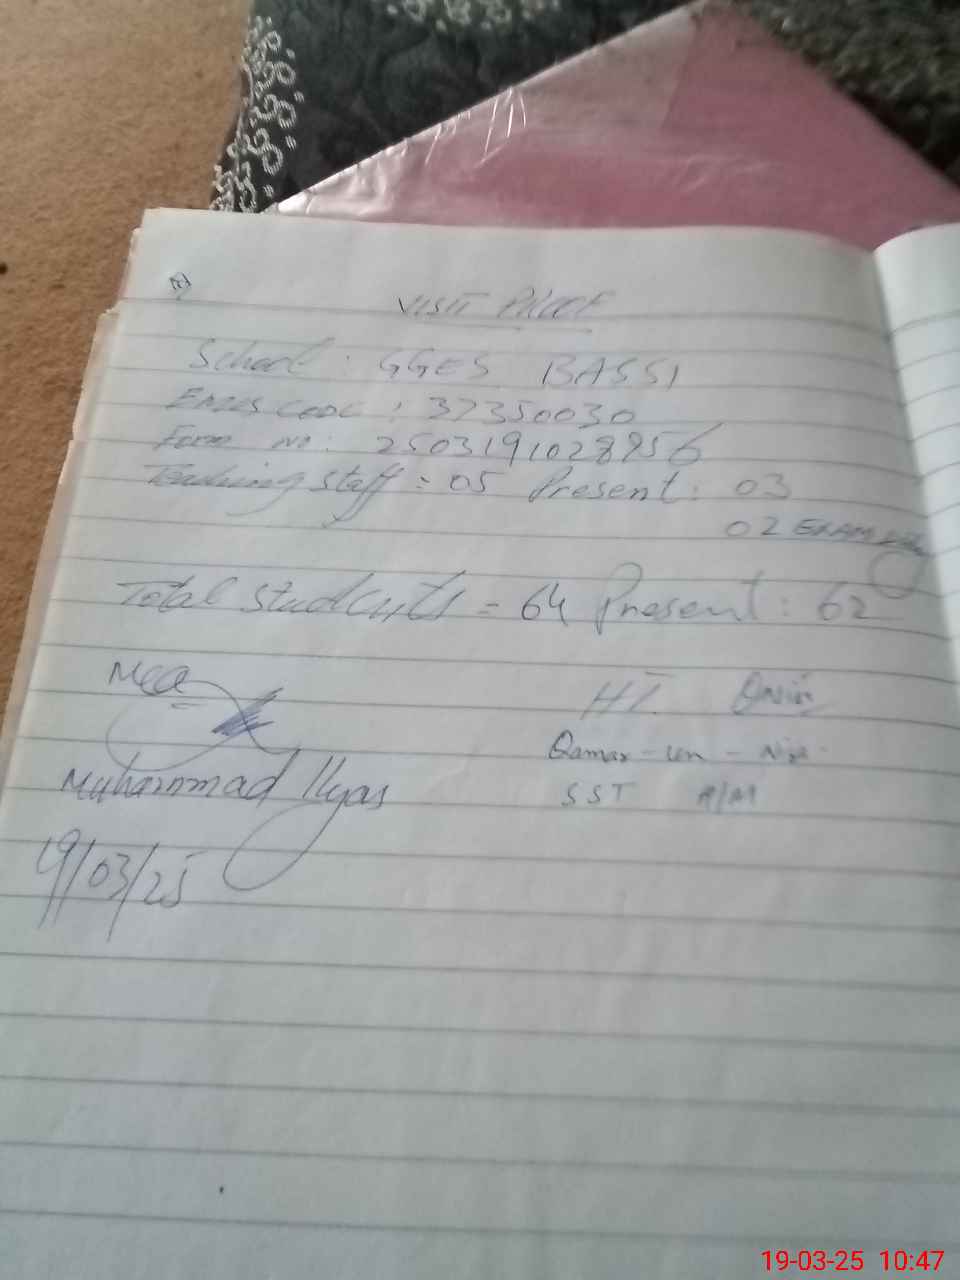 VISIT PROOF
School : GGES BASSI
EMIS CODE : 37350030
Form no: 2503191028956
Teaching staff = 05 Present : 03
02 EXAM
Total Students = 64 Present : 62
MEA
HT
Muhammad Ilyas
Qamar-un-Nisa
SST
19/03/25
19-03-25 10:47